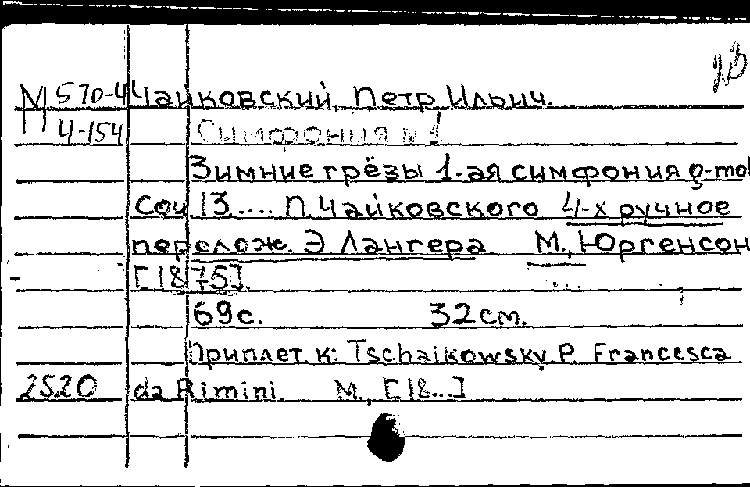 23
М 570-4 Чайковский, Петр Ильич.
4-154 Симфония №1
Зимние грёзы 1-ая симфония g-mol
Соч 13.... П. Чайковского 4-х ручное
перелож. Э Лангера М., Юргенсон
[1875].
69с. 32см.
Приплет. к: Tschaikowsky P. Francesca
2520 da Rimini. М., [18...]